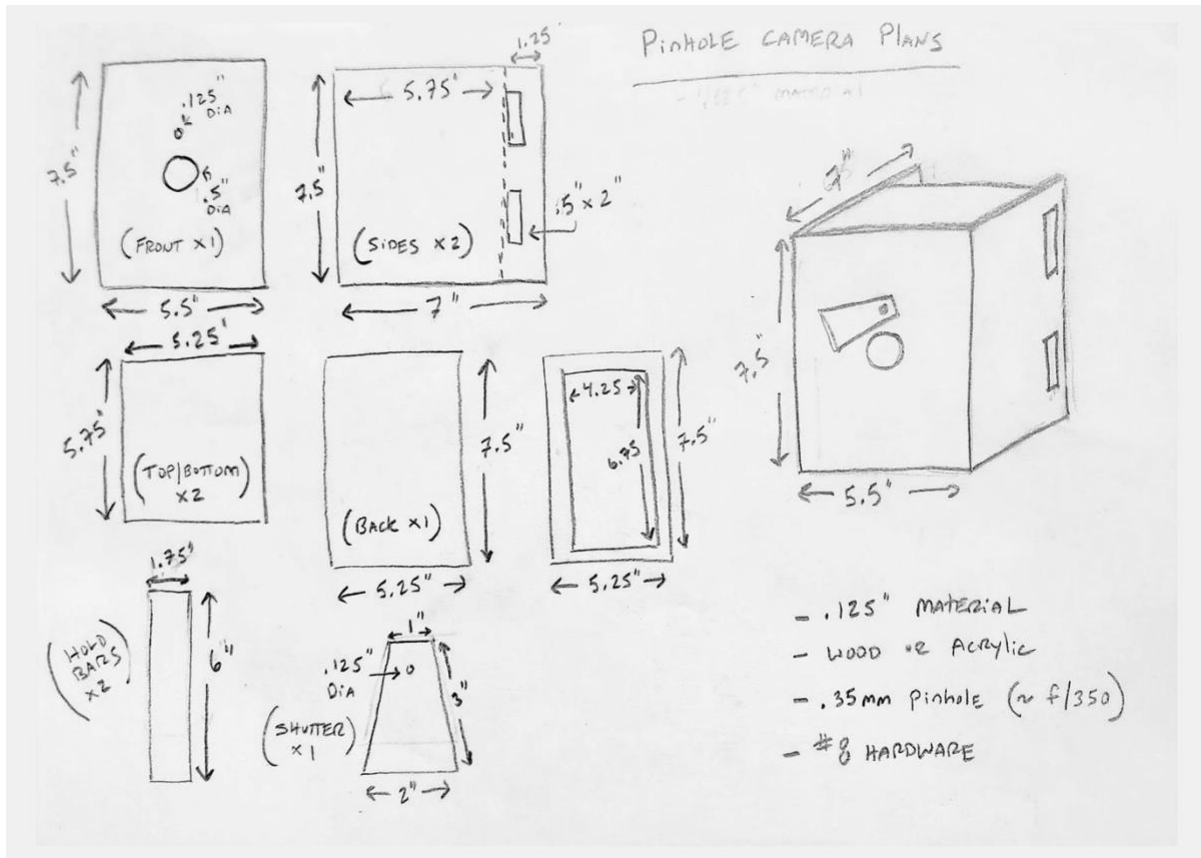 PinHOLE CAMERA PLANS
7.5"
.125"
DiA
.5"
DiA
(FRONT x1)
5.5"
1.25
5.75'
7.5"
.5" x 2"
(SiDES x2)
7"
5.25'
5.75"
(TOP/BOTTOM)
x2
7.5"
(BACK x1)
5.25"
4.25
6.75
7.5"
5.25"
1.75'
(HOLD
BARS
x2)
6"
1"
.125"
DiA
3"
(SHUTTER
x1)
2"
7.5"
5.5"
- .125" MATERiAL
- WOOD OR ACRYLiC
- .35mm PinHOLE (~ f/350)
- #8 HARDWARE